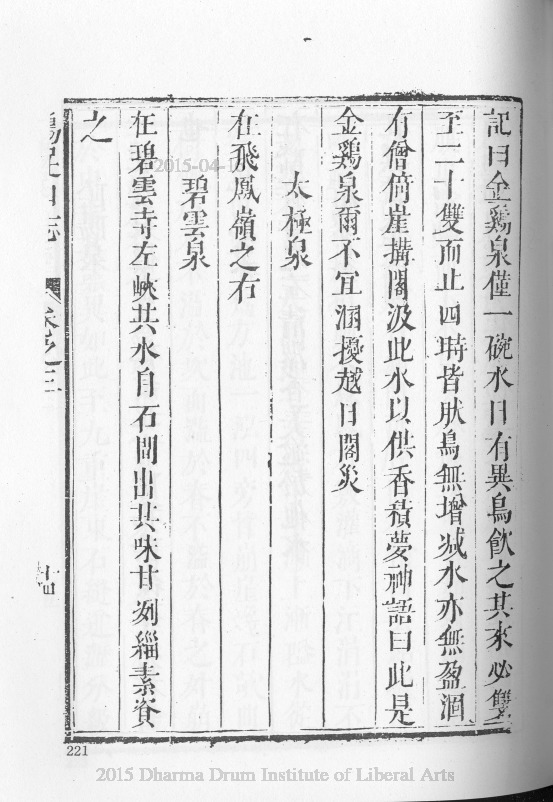 記曰金鷄泉僅一碗水日有異鳥飲之其來必雙
至二十雙而止四時皆肰鳥無增减水亦無盈涸
有僧倚崖搆閣汲此水以供香積夢神語曰此是
金鷄泉爾不宜溷擾越日閣災
太極泉
在飛鳳嶺之右
碧雲泉
在碧雲寺左峽其水自石間出其味甘冽緇素資
之
鷄足山志
卷之三
十四
2015-04-1
221
2015 Dharma Drum Institute of Liberal Arts